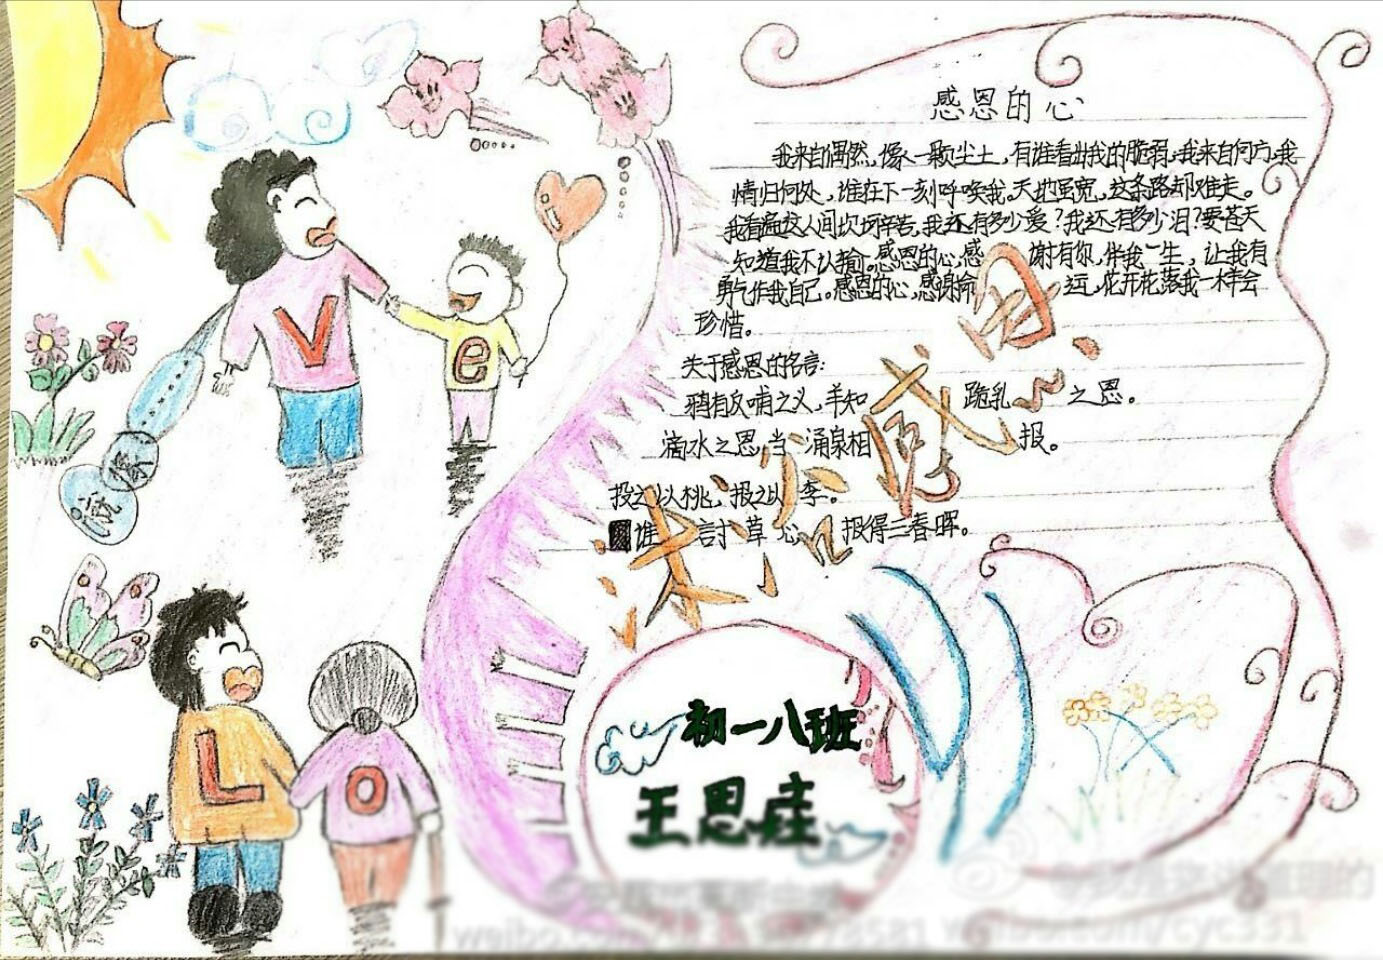 感恩的心
我来自偶然,像一颗尘土,有谁看出我的脆弱,我来自何方,我
情归何处,谁在下一刻呼唤我。天地虽宽,这条路却难走。
我看遍这人间坎坷辛苦,我还有多少爱?我还有多少泪?要苍天
知道我不认输。感恩的心,感谢有你,伴我一生,让我有
勇气作我自己。感恩的心,感谢命运,花开花落我一样会
珍惜。
关于感恩的名言:
鸦有反哺之义,羊知跪乳之恩。
滴水之恩,当涌泉相报。
投之以桃,报之以李。
谁言寸草心报得三春晖。
感恩
V
e
L
o
初一八班
王思
weibo.com/cyc331